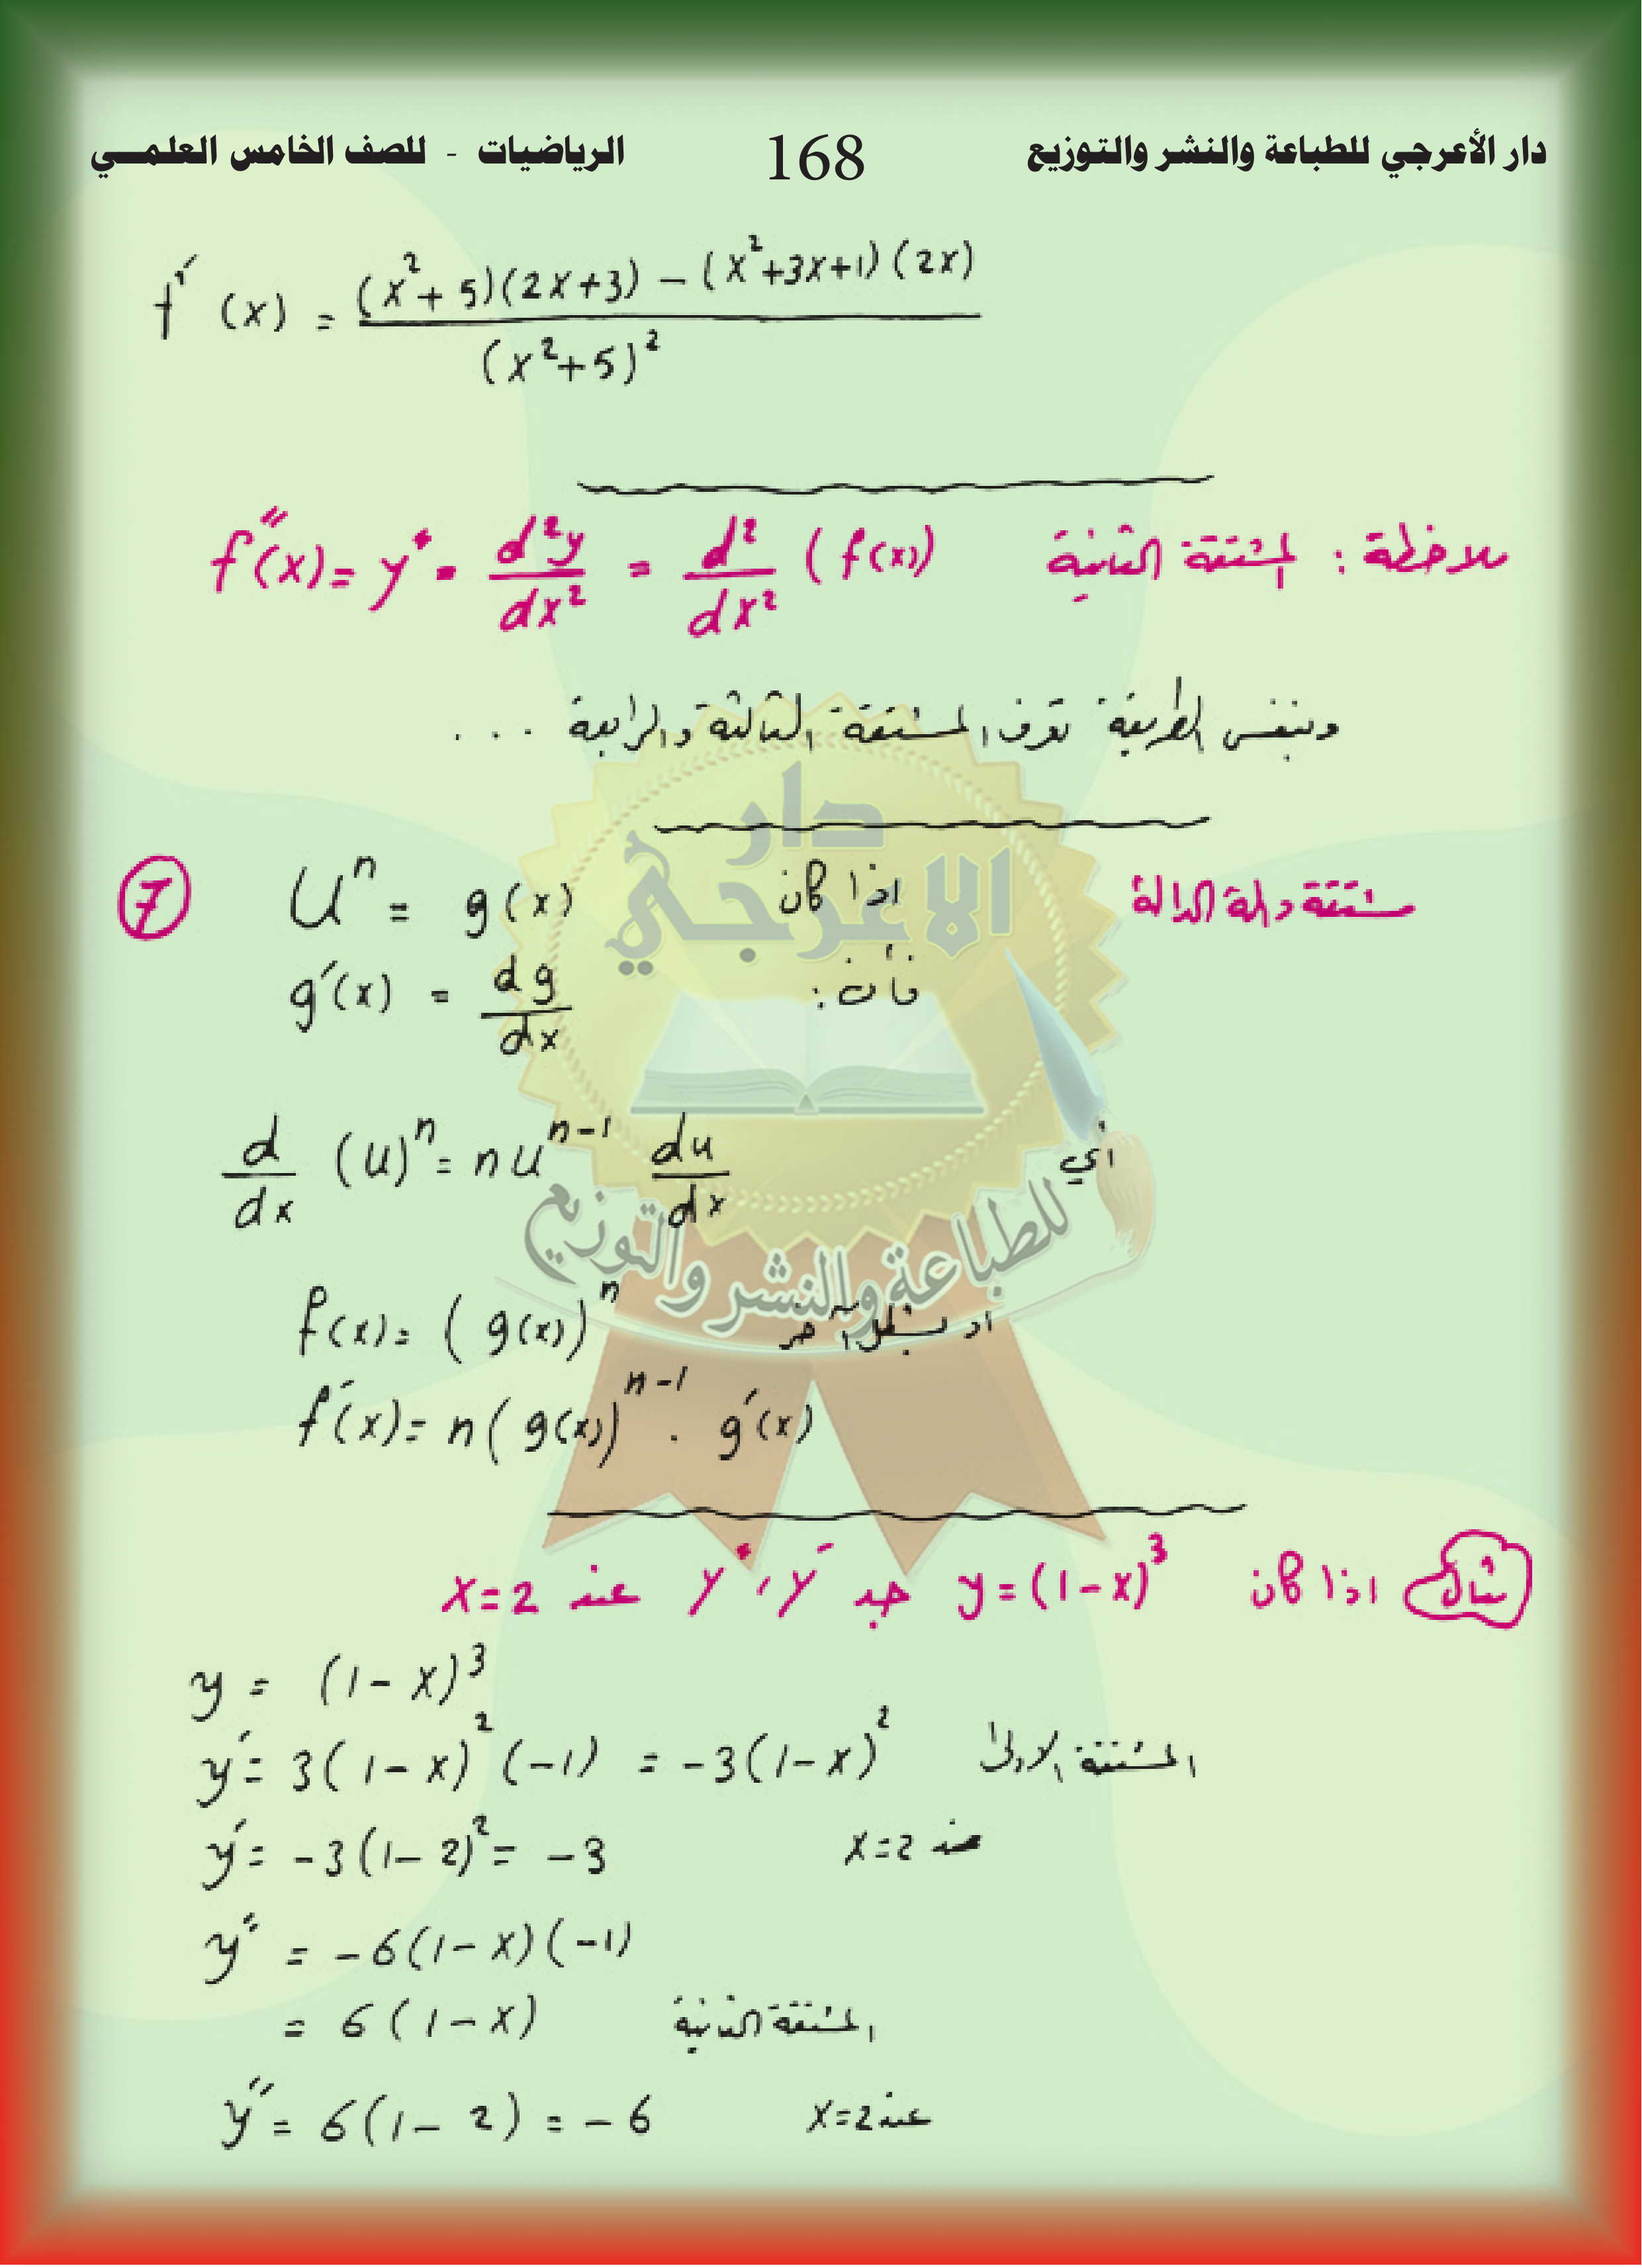 دار الأعرجي للطباعة والنشر والتوزيع 168 الرياضيات - للصف الخامس العلمي
f′(x) = ((x²+5)(2x+3) − (x²+3x+1)(2x)) / (x²+5)²
ملاحظة : المشتقة الثانية f″(x) = y″ = d²y/dx² = d²/dx² (f(x))
وبنفس الطريقة تعرف المشتقة الثالثة والرابعة ...
مشتقة دالة الدالة اذا كان Uⁿ = g(x) ⑦
فأن : g′(x) = dg/dx
أي d/dx (u)ⁿ = n uⁿ⁻¹ du/dx
او بشكل آخر f(x) = (g(x))ⁿ
f′(x) = n(g(x))ⁿ⁻¹ . g′(x)
دار
الاعرجي
للطباعة والنشر والتوزيع
مثال اذا كان y=(1−x)³ جد y′ ، y″ عند x=2
y = (1−x)³
y′ = 3(1−x)²(−1) = −3(1−x)² المشتقة الاولى
y′ = −3(1−2)² = −3 عند x=2
y″ = −6(1−x)(−1)
= 6(1−x) المشتقة الثانية
y″ = 6(1−2) = −6 عند x=2